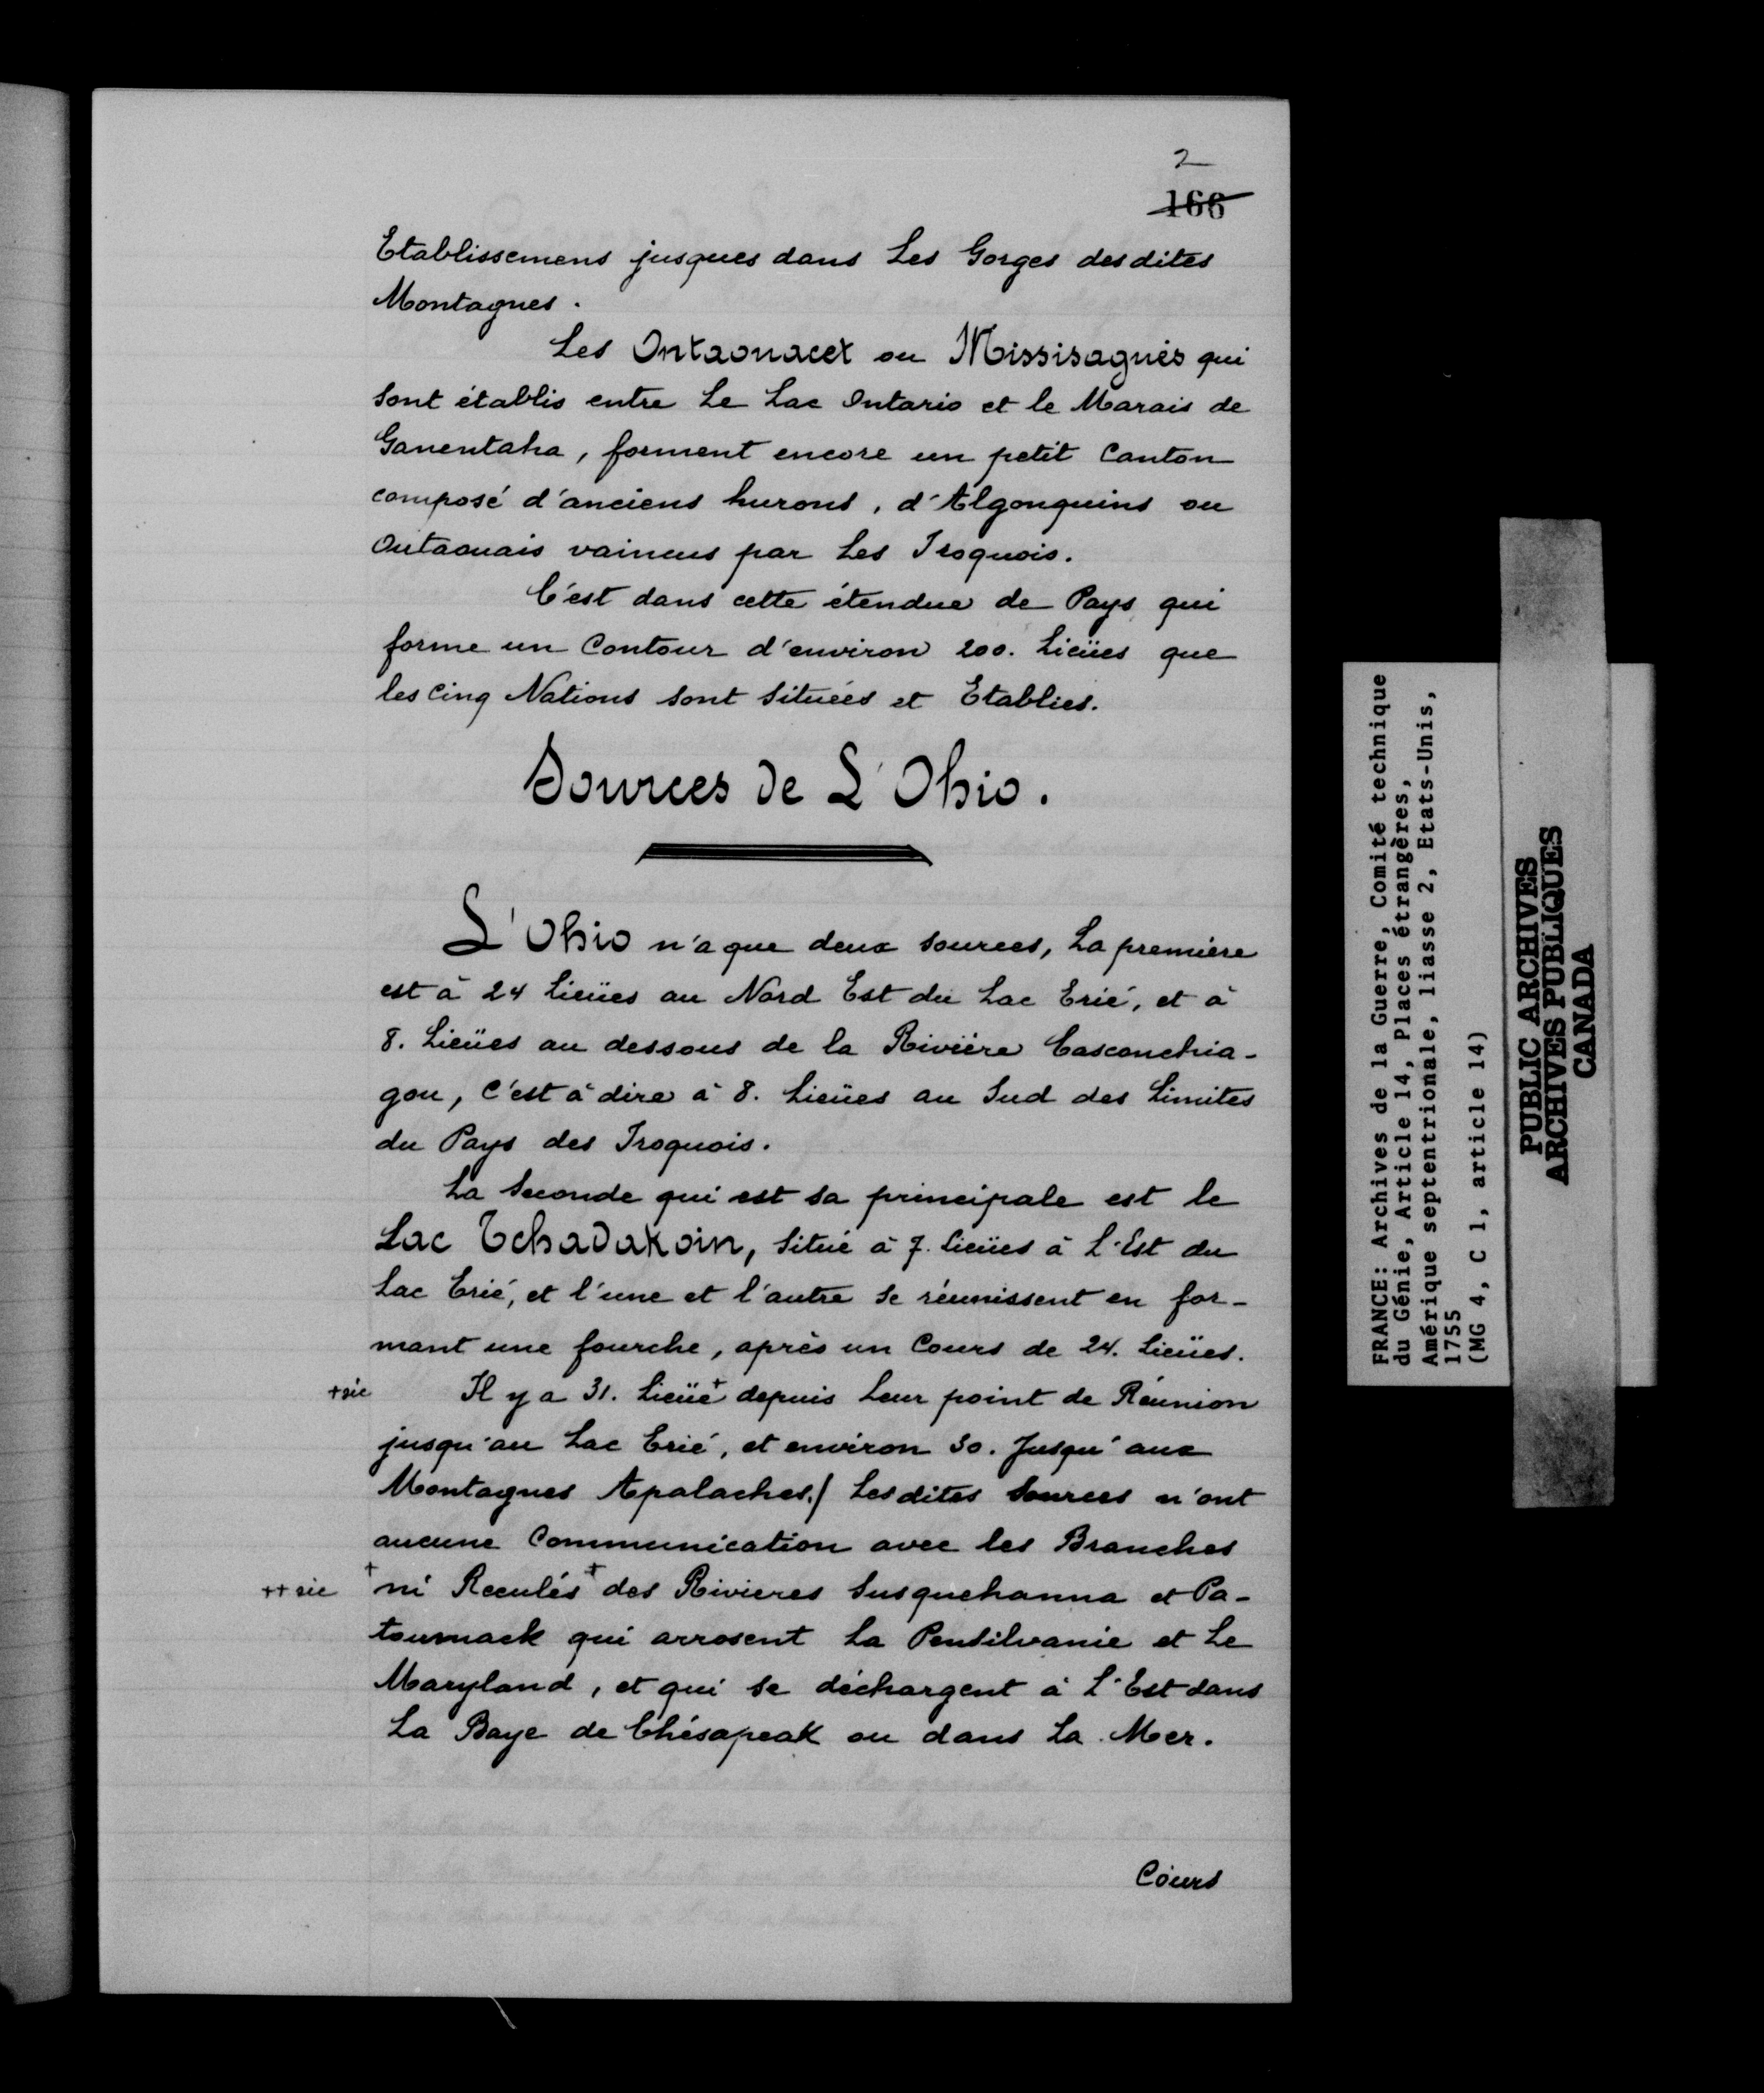 2
166
Etablissemens jusques dans Les Gorges desdites
Montagnes.
Les Ontaonacet ou Missisagués qui
sont établis entre Le Lac Ontario et le Marais de
Ganentaha, forment encore un petit Canton
composé d'anciens hurons, d'Algonquins ou
Outaouais vaincus par Les Iroquois.
C'est dans cette étendue de Pays qui
forme un Contour d'environ 200. Lieües que
les Cinq Nations sont Situées et Etablies.
Sources de L'Ohio.
L'Ohio n'a que deux sources, La premiere
est à 24 Lieües au Nord Est du Lac Erié, et à
8. Lieües au dessous de la Riviére Casconchia-
gou, C'est à dire à 8. Lieües au Sud des Limites
du Pays des Iroquois.
La Seconde qui est sa principale est le
Lac Tchadakoin, Situé à 7. Lieües à L'Est du
Lac Erié, et l'une et l'autre se réunissent en for-
mant une fourche, après un Cours de 24. Lieües.
+sic Il y a 31. Lieüe+ depuis Leur point de Réunion
jusqu'au Lac Erié, et environ 30. Jusqu'aux
Montagnes Apalaches./ Lesdites Sources n'ont
aucune Communication avec les Branches
++ sic +ni Reculés+ des Rivieres Susquehanna et Pa-
toumack qui arrosent La Pensilvanie et Le
Maryland, et qui se déchargent à L'Est dans
La Baye de Chésapeak ou dans La Mer.
Cours
FRANCE: Archives de la Guerre, Comité technique
du Génie, Article 14, places étrangères,
Amérique septentrionale, liasse 2, Etats-Unis,
1755
(MG 4, C 1, article 14)
PUBLIC ARCHIVES
ARCHIVES PUBLIQUES
CANADA